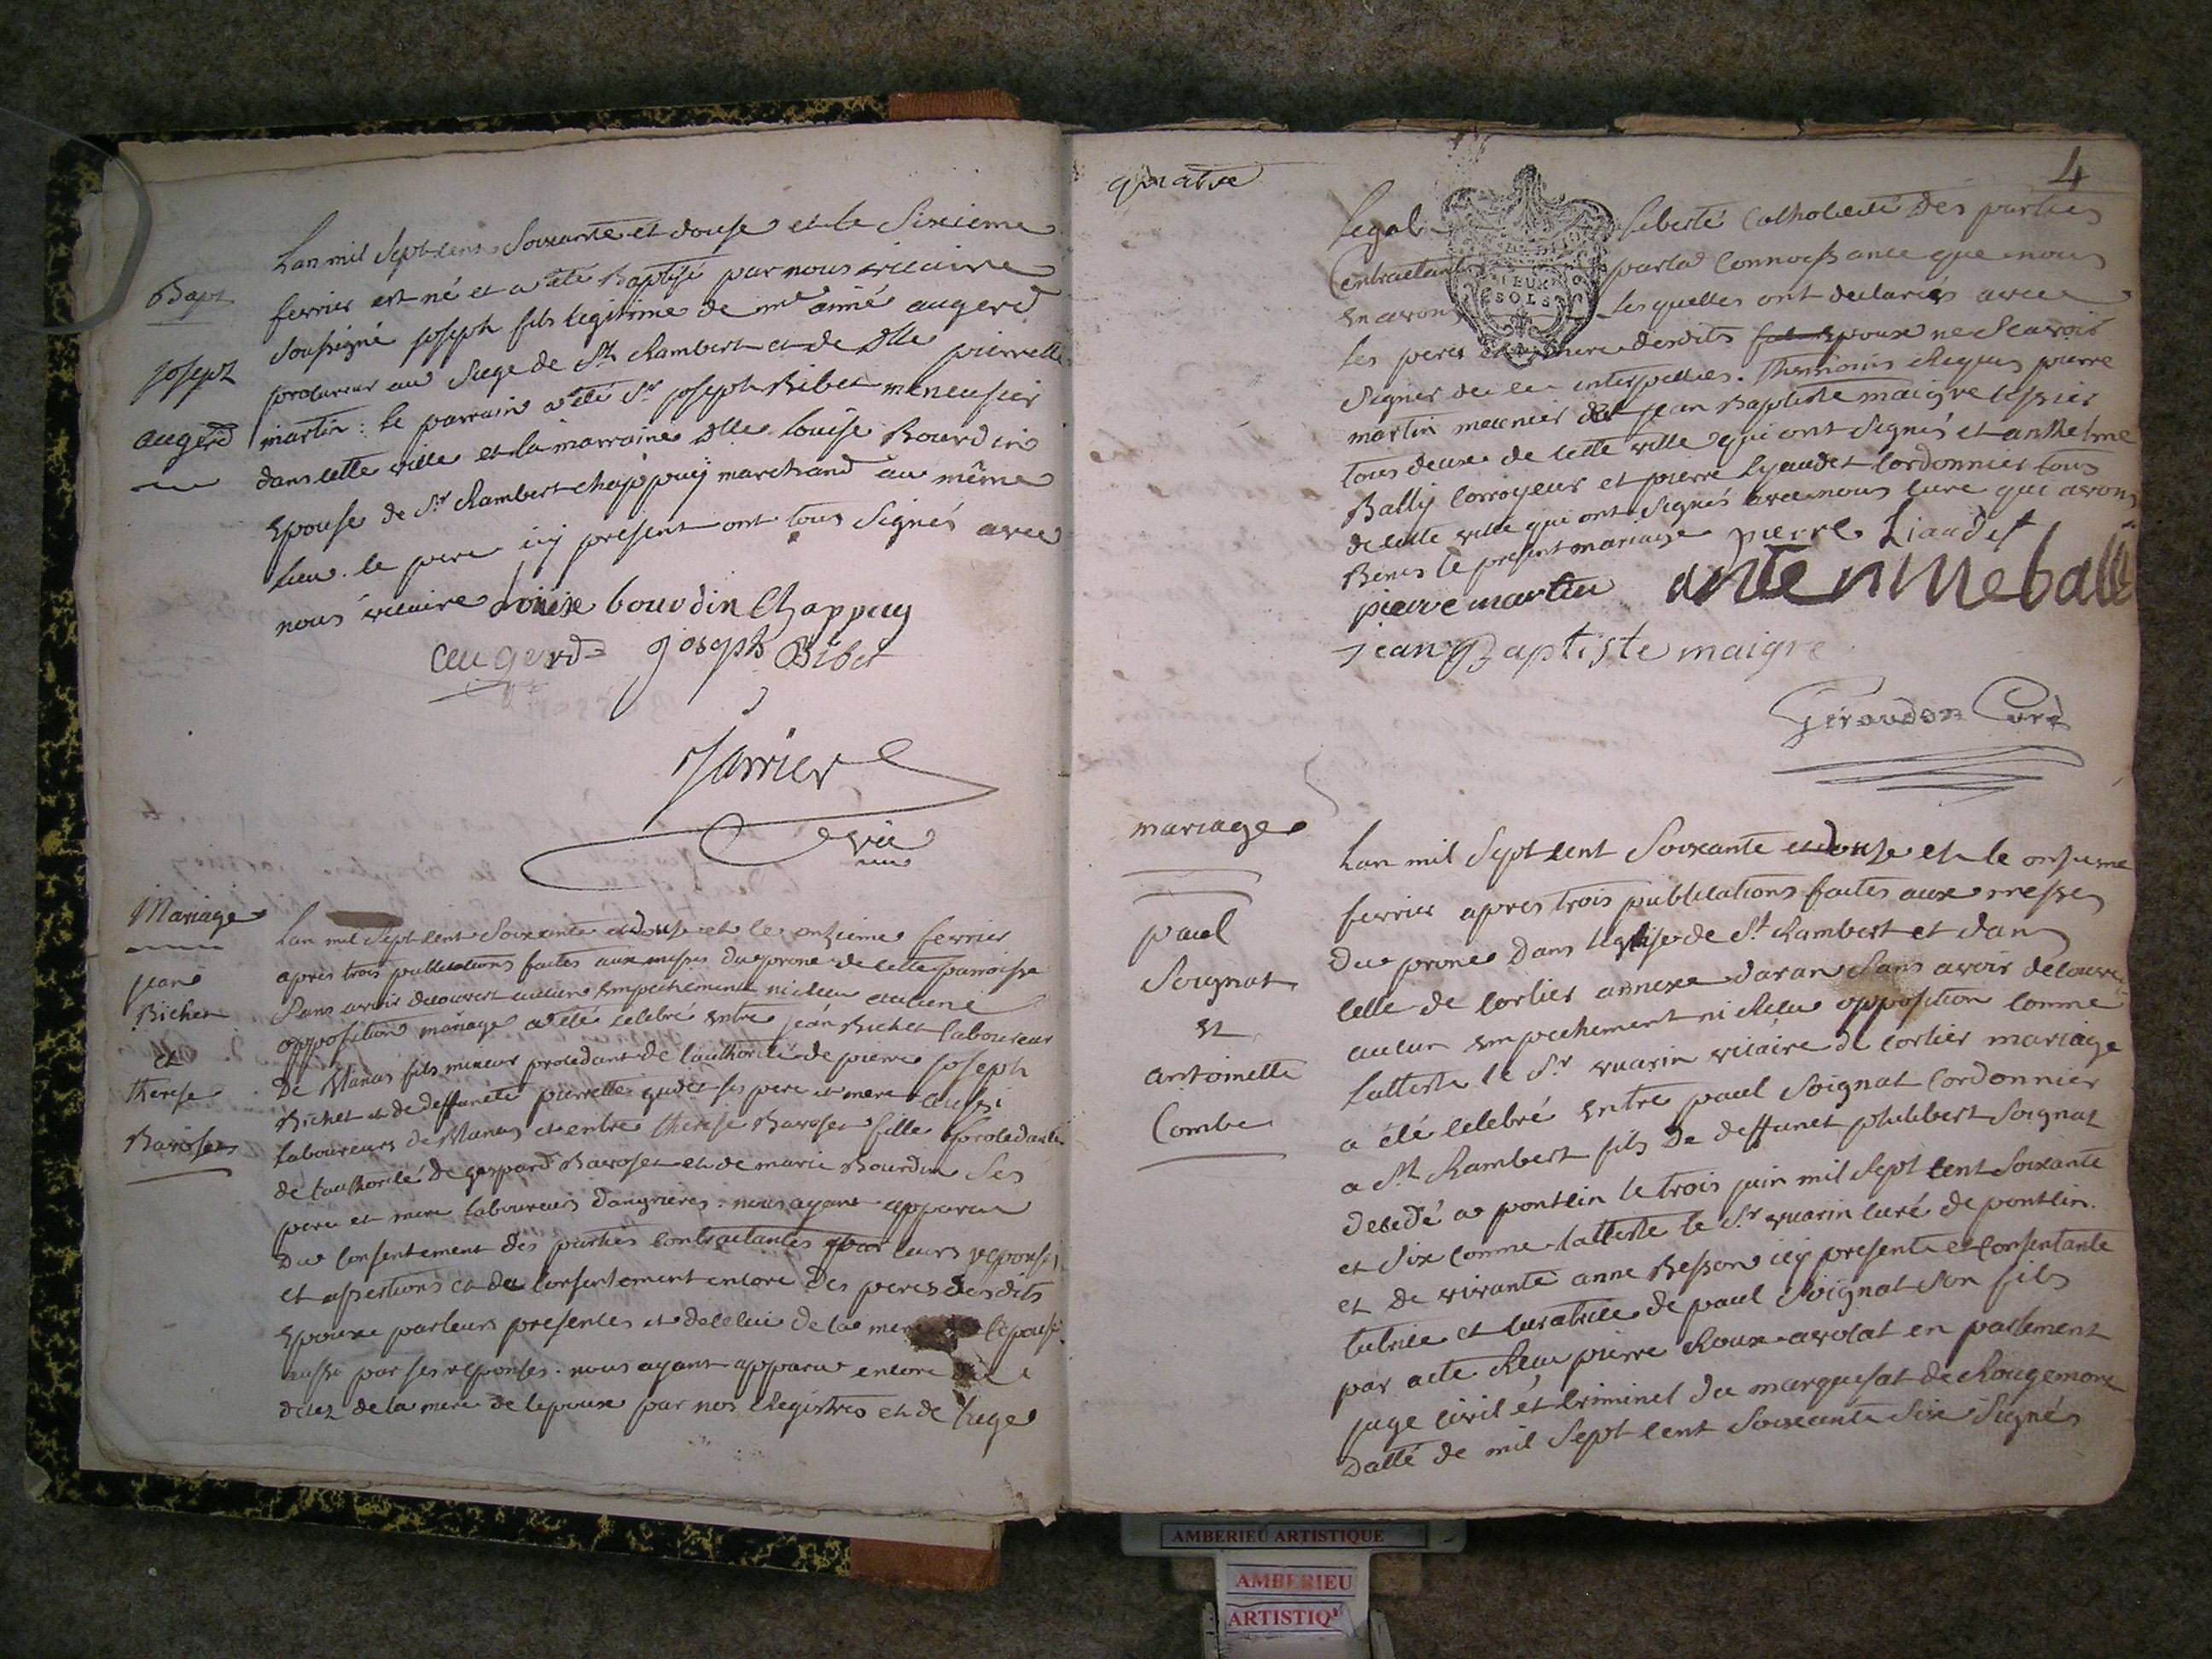 Bapt
Joseph
augerd
Lan mil Sept cens Soixante et douse et le Sixieme
fevrier est né et a été Baptisé par nous vicaire
Soussigné joseph fils legitime de me aimé augerd
procureur au Siege de St Rambert et de Dlle pierrette
martin : le parrain a été Sr joseph Ribet menuisier
dans cette ville et la marraine Dlle Louise Bourdin
Epouse de Sr Rambert chappuy marchand au même
Lieu. le pere icy present ont tous Signés avec
nous vicaire Louise bourdin Chappuy
augerd joseph Ribet
Jarrier
vic
Mariage
jean
Richet
et
therese
Baroset
Lan mil Sept cent Soixante et douse et le onzieme fevrier
apres trois publications faites aux messes du prone de cette parroisse
Sans avoir decouvert aucun Empechement ni aucune
opposition mariage a été celebré entre jean Richet laboureur
De Blanas fils mineur procedant de l'authorité de pierre joseph
Richet et de deffuncte pierrette ses pere et mere aussi
Laboureurs de Blanas et entre therese Baroset fille procedante
de l'authorité de gaspard Baroset et de marie Bourdin Ses
pere et mere laboureurs d'angrieres : nous ayant apparu
Du Consentement des parties Contractantes par leurs reponses
et assertions et du Consentement encore des peres desdits
Epoux par leurs presences et de celui de la mere l'epouse
aussi par ses reponses. nous ayant apparu encore
decez de la mere de l'epoux par nos Registres et de l'age
quatre
4
legal liberté Catholicité Des parties
Contractantes par la Connoissance que nous
en avons lesquelles ont declarées avec
les peres et mere desdits Epoux ne Scavoir
Signer de ce interpellés. Themoins Requis pierre
martin meunier et jean Baptiste maigre tissier
tous deux de cette ville qui ont Signés et anthelme
Bally Corroyeur et pierre Lyaudet Cordonnier tous
de cette ville qui ont Signés avec nous Curé qui avons
Benis le present mariage pierre Liaudet
pierre martin antenme balli
jean Baptiste maigre
Géraudon Curé
mariage
paul
Soignat
et
antoinette
Combe
Lan mil Sept cent Soixante et douse et le onzieme
fevrier apres trois publications faites aux messes
Du prone Dans l'eglise de St Rambert et dans
celle de Corlier annexe daran Sans avoir decouvert
aucun empechement ni Recu opposition comme
Latteste le Sr vuarin vicaire de Corlier mariage
a été celebré entre paul Soignat Cordonnier
a St Rambert fils De deffunct philibert Soignat
decedé a pontlin le trois juin mil Sept cent Soixante
et Six comme latteste le Sr vuarin curé de pontlin
et de vivante anne Besson icy presente et Consentante
tutrice et curatrice de paul Soignat Son fils
par acte Recu pierre Roux avocat en parlement
juge Civil et Criminel du marquisat de Rougemont
Datté de mil Sept cent Soixante Six Signés
AMBERIEU ARTISTIQUE
AMBERIEU
ARTISTIQ